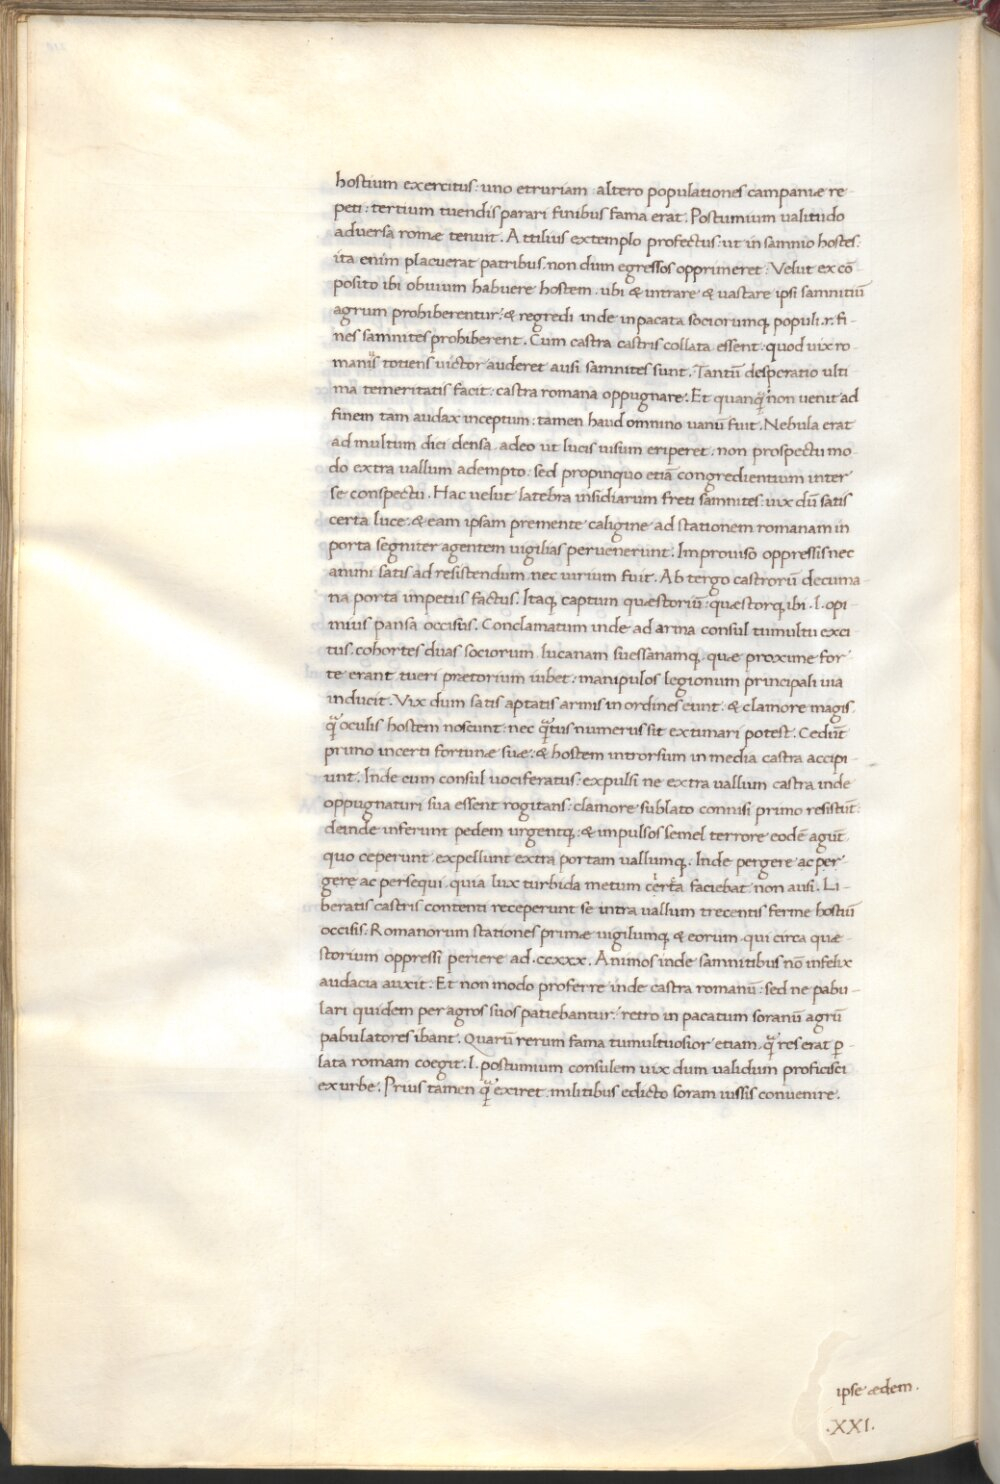 hostium exercitus: uno etruriam altero populationes campaniæ re-
peti: tertium tuendis parari finibus fama erat. Postumium valitudo
adversa romæ tenuit. Attilius extemplo profectus: ut in samnio hostes:
ita enim placuerat patribus. non dum egressos opprimeret: Velut ex cō
posito ibi obvium habuere hostem. ubi & intrare & vastare ipsi samnitiū
agrum prohiberentur: & regredi inde in pacata sociorumq; populi .r. fi-
nes samnites prohiberent. Cum castra castris collata essent: quod vix ro-
manus totiens victor auderet ausi samnites sunt. Tantū desperatio ulti
ma temeritatis facit: castra romana oppugnare. Et quanq̄ non venit ad
finem tam audax inceptum: tamen haud omnino vanū fuit. Nebula erat
ad multum diei densa adeo ut lucis usum eriperet. non prospectu mo-
do extra vallum adempto: sed propinquo etiā congredientium inter
se conspectu. Hac velut latebra insidiarum freti samnites: vix dū satis
certa luce: & eam ipsam premente caligine ad stationem romanam in
porta segniter agentem vigilias pervenerunt. Improviso oppressis nec
animi satis ad resistendum nec virium fuit. Ab tergo castrorū decuma-
na porta impetus factus. Itaq; captum quæstoriū: quæstorq; ibi .l. opi
mius pansa occisus. Conclamatum inde ad arma consul tumultu exci
tus. cohortes duas sociorum lucanam suessanamq; quæ proxume for
te erant tueri prætorium iubet: manipulos legionum principali via
inducit. Vix dum satis aptatis armis in ordines eunt: & clamore magis
q̄ oculis hostem noscunt: nec q̄tus numerus sit extimari potest. Cedūt
primo incerti fortunæ suæ: & hostem introrsum in media castra accipi
unt. Inde cum consul vociferatus: expulsi ne extra vallum castra inde
oppugnaturi sua essent rogitans: clamore sublato connisi primo resistūt:
deinde inferunt pedem urgentq; & impulsos semel terrore eodē agūt
quo ceperunt. expellunt extra portam vallumq;. Inde pergere ac per
gere ac persequi. quia lux turbida metum certa faciebat non ausi. Li-
beratis castris contenti receperunt se intra vallum trecentis ferme hostiū
occisis. Romanorum stationes primæ vigilumq; & eorum qui circa quæ-
storium oppressi periere ad .ccxxx. Animos inde samnitibus nō infelix
audacia auxit. Et non modo proferre inde castra romanū: sed ne pabu-
lari quidem per agros suos patiebantur: retro in pacatum soranū agrū
pabulatores ibant. Quarū rerum fama tumultuosior etiam q̄ res erat p̄
lata romam coegit .l. postumium consulem vix dum validum proficisci
ex urbe. Prius tamen q̄ exiret militibus edicto soram iussis convenire.
ipse ædem.
.XXI.